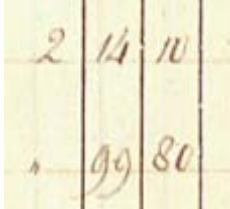 2 14 10
" 99 80